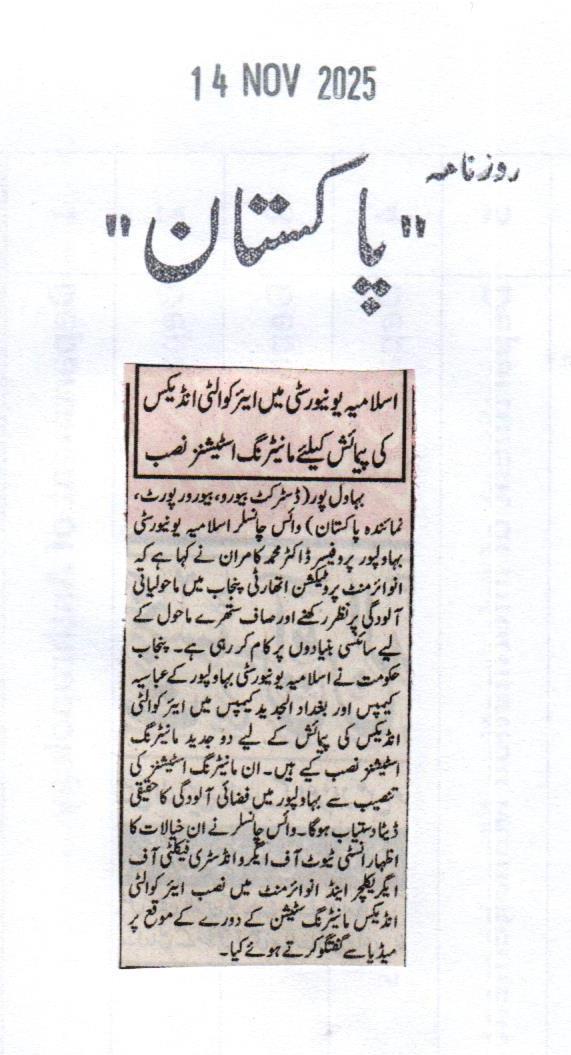 14 NOV 2025
روزنامہ
"پاکستان"
اسلامیہ یونیورسٹی میں ایئر کوالٹی انڈیکس
کی پیمائش کیلئے مانیٹرنگ اسٹیشنز نصب
بہاول پور (ڈسٹرکٹ بیورو، بیورو رپورٹ،
نمائندہ پاکستان) وائس چانسلر اسلامیہ یونیورسٹی
بہاولپور پروفیسر ڈاکٹر محمد کامران نے کہا ہے کہ
انوائرمنٹ پروٹیکشن اتھارٹی پنجاب میں ماحولیاتی
آلودگی پر نظر رکھنے اور صاف ستھرے ماحول کے
لیے سائنسی بنیادوں پر کام کر رہی ہے۔ پنجاب
حکومت نے اسلامیہ یونیورسٹی بہاولپور کے عباسیہ
کیمپس اور بغداد الجدید کیمپس میں ایئر کوالٹی
انڈیکس کی پیمائش کے لیے دو جدید مانیٹرنگ
اسٹیشنز نصب کیے ہیں۔ ان مانیٹرنگ اسٹیشنز کی
تنصیب سے بہاولپور میں فضائی آلودگی کا حقیقی
ڈیٹا دستیاب ہوگا۔ وائس چانسلر نے ان خیالات کا
اظہار انسٹی ٹیوٹ آف ایگرو انڈسٹری فیکلٹی آف
ایگریکلچر اینڈ انوائرمنٹ میں نصب ایئر کوالٹی
انڈیکس مانیٹرنگ سٹیشن کے دورے کے موقع پر
میڈیا سے گفتگو کرتے ہوئے کیا۔